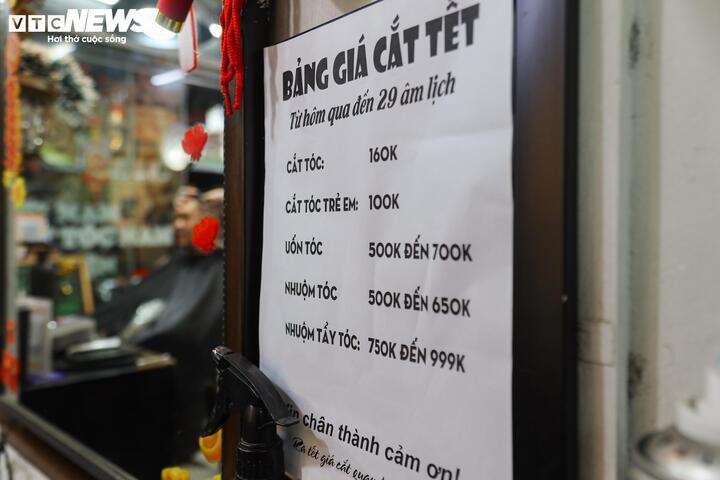 VTC NEWS
Hơi thở cuộc sống
BẢNG GIÁ CẮT TẾT
Từ hôm qua đến 29 âm lịch
CẮT TÓC: 160K
CẮT TÓC TRẺ EM: 100K
UỐN TÓC 500K ĐẾN 700K
NHUỘM TÓC 500K ĐẾN 650K
NHUỘM TẨY TÓC: 750K ĐẾN 999K
chân thành cảm ơn!
Ra tết giá cắt